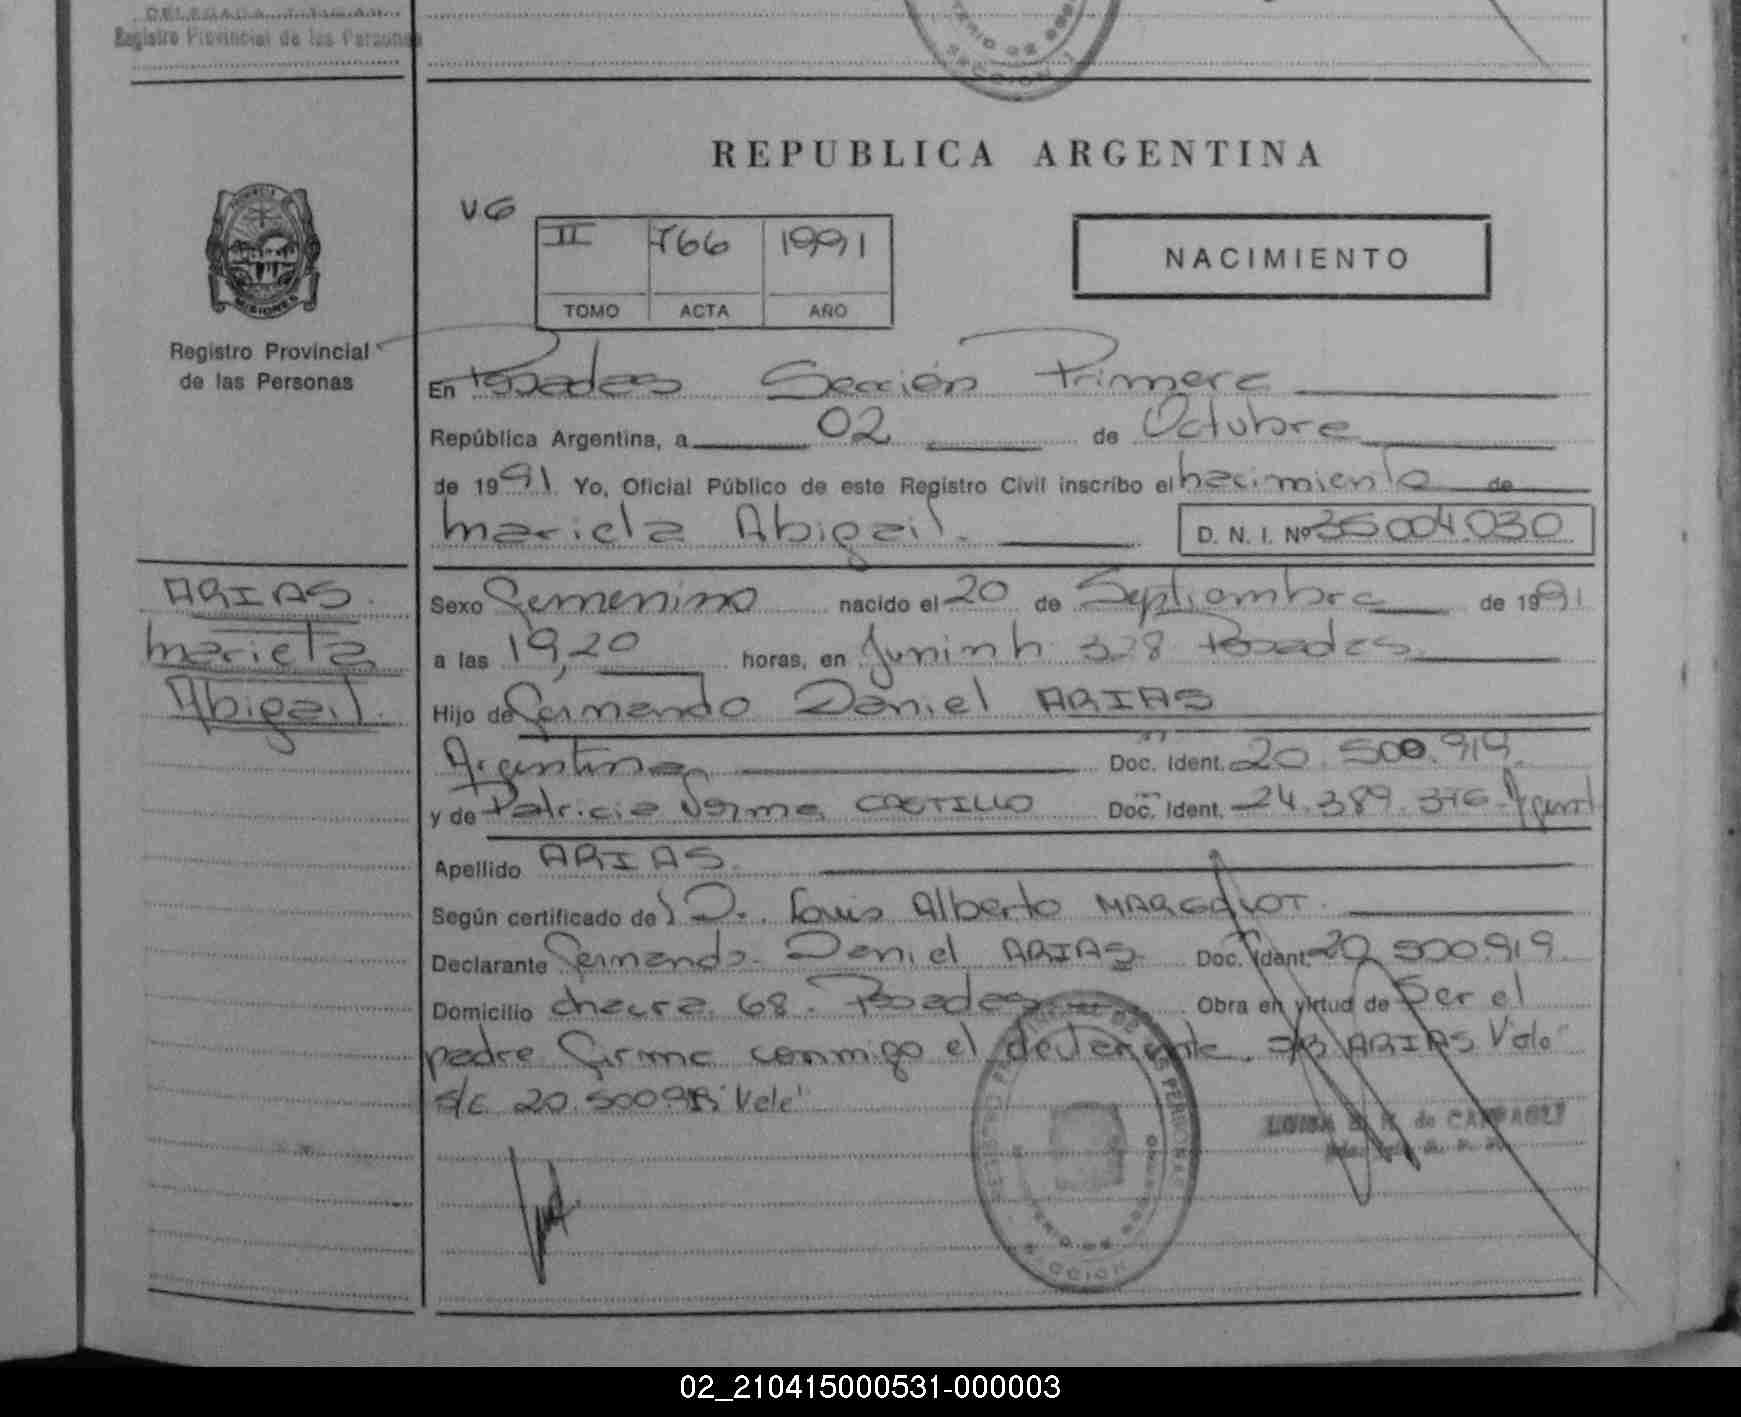 Registro Provincial de las Personas
SECCION 1
REPUBLICA ARGENTINA
VG
II 766 1991
TOMO ACTA AÑO
NACIMIENTO
MISIONES
Registro Provincial
de las Personas
En Posadas Sección Primera
República Argentina, a 02 de Octubre
de 1991 Yo, Oficial Público de este Registro Civil inscribo el nacimiento de
Mariela Abigail. D. N. I. Nº 36.004.030
ARIAS.
Mariela
Abigail.
Sexo femenino nacido el 20 de Septiembre de 1991
a las 19,20 horas, en Junin n 328 Posadas
Hijo de Fernando Daniel ARIAS
Argentino Doc. Ident. 20.500.919.
y de Patricia Norma CASTILLO Doc. Ident. 24.389.376 Argent
Apellido ARIAS.
Según certificado de D. Louis Alberto
Declarante Fernando Daniel ARIAS Doc. Ident. 20.500.919.
Domicilio chacra 68. Posadas Obra en virtud de Ser el
padre firma conmigo el declarante. ARIAS Vale
S/C 20.500.919 "Vale"
LUISA de
02_210415000531-000003